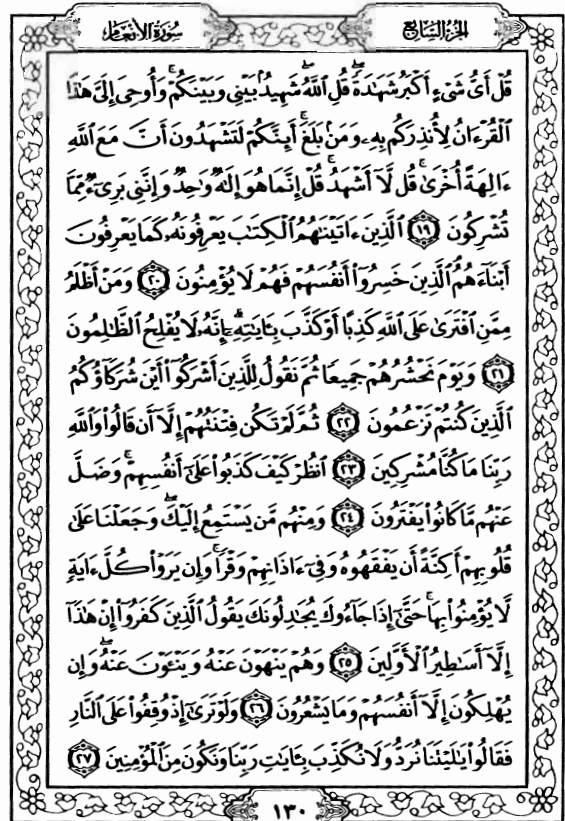 الجزء السابع
سورة الأنعام
قُلْ أَىُّ شَىْءٍ أَكْبَرُ شَهَٰدَةً ۖ قُلِ ٱللَّهُ ۖ شَهِيدٌۢ بَيْنِى وَبَيْنَكُمْ ۚ وَأُوحِىَ إِلَىَّ هَٰذَا
ٱلْقُرْءَانُ لِأُنذِرَكُم بِهِۦ وَمَنۢ بَلَغَ ۚ أَئِنَّكُمْ لَتَشْهَدُونَ أَنَّ مَعَ ٱللَّهِ
ءَالِهَةً أُخْرَىٰ ۚ قُل لَّآ أَشْهَدُ ۚ قُلْ إِنَّمَا هُوَ إِلَٰهٌ وَٰحِدٌ وَإِنَّنِى بَرِىٓءٌ مِّمَّا
تُشْرِكُونَ ١٩ ٱلَّذِينَ ءَاتَيْنَٰهُمُ ٱلْكِتَٰبَ يَعْرِفُونَهُۥ كَمَا يَعْرِفُونَ
أَبْنَآءَهُمُ ٱلَّذِينَ خَسِرُوٓا۟ أَنفُسَهُمْ فَهُمْ لَا يُؤْمِنُونَ ٢٠ وَمَنْ أَظْلَمُ
مِمَّنِ ٱفْتَرَىٰ عَلَى ٱللَّهِ كَذِبًا أَوْ كَذَّبَ بِـَٔايَٰتِهِۦٓ ۗ إِنَّهُۥ لَا يُفْلِحُ ٱلظَّٰلِمُونَ
٢١ وَيَوْمَ نَحْشُرُهُمْ جَمِيعًا ثُمَّ نَقُولُ لِلَّذِينَ أَشْرَكُوٓا۟ أَيْنَ شُرَكَآؤُكُمُ
ٱلَّذِينَ كُنتُمْ تَزْعُمُونَ ٢٢ ثُمَّ لَمْ تَكُن فِتْنَتُهُمْ إِلَّآ أَن قَالُوا۟ وَٱللَّهِ
رَبِّنَا مَا كُنَّا مُشْرِكِينَ ٢٣ ٱنظُرْ كَيْفَ كَذَبُوا۟ عَلَىٰٓ أَنفُسِهِمْ ۚ وَضَلَّ
عَنْهُم مَّا كَانُوا۟ يَفْتَرُونَ ٢٤ وَمِنْهُم مَّن يَسْتَمِعُ إِلَيْكَ ۖ وَجَعَلْنَا عَلَىٰ
قُلُوبِهِمْ أَكِنَّةً أَن يَفْقَهُوهُ وَفِىٓ ءَاذَانِهِمْ وَقْرًا ۚ وَإِن يَرَوْا۟ كُلَّ ءَايَةٍ
لَّا يُؤْمِنُوا۟ بِهَا ۚ حَتَّىٰٓ إِذَا جَآءُوكَ يُجَٰدِلُونَكَ يَقُولُ ٱلَّذِينَ كَفَرُوٓا۟ إِنْ هَٰذَآ
إِلَّآ أَسَٰطِيرُ ٱلْأَوَّلِينَ ٢٥ وَهُمْ يَنْهَوْنَ عَنْهُ وَيَنْـَٔوْنَ عَنْهُ ۖ وَإِن
يُهْلِكُونَ إِلَّآ أَنفُسَهُمْ وَمَا يَشْعُرُونَ ٢٦ وَلَوْ تَرَىٰٓ إِذْ وُقِفُوا۟ عَلَى ٱلنَّارِ
فَقَالُوا۟ يَٰلَيْتَنَا نُرَدُّ وَلَا نُكَذِّبَ بِـَٔايَٰتِ رَبِّنَا وَنَكُونَ مِنَ ٱلْمُؤْمِنِينَ ٢٧
١٣٠